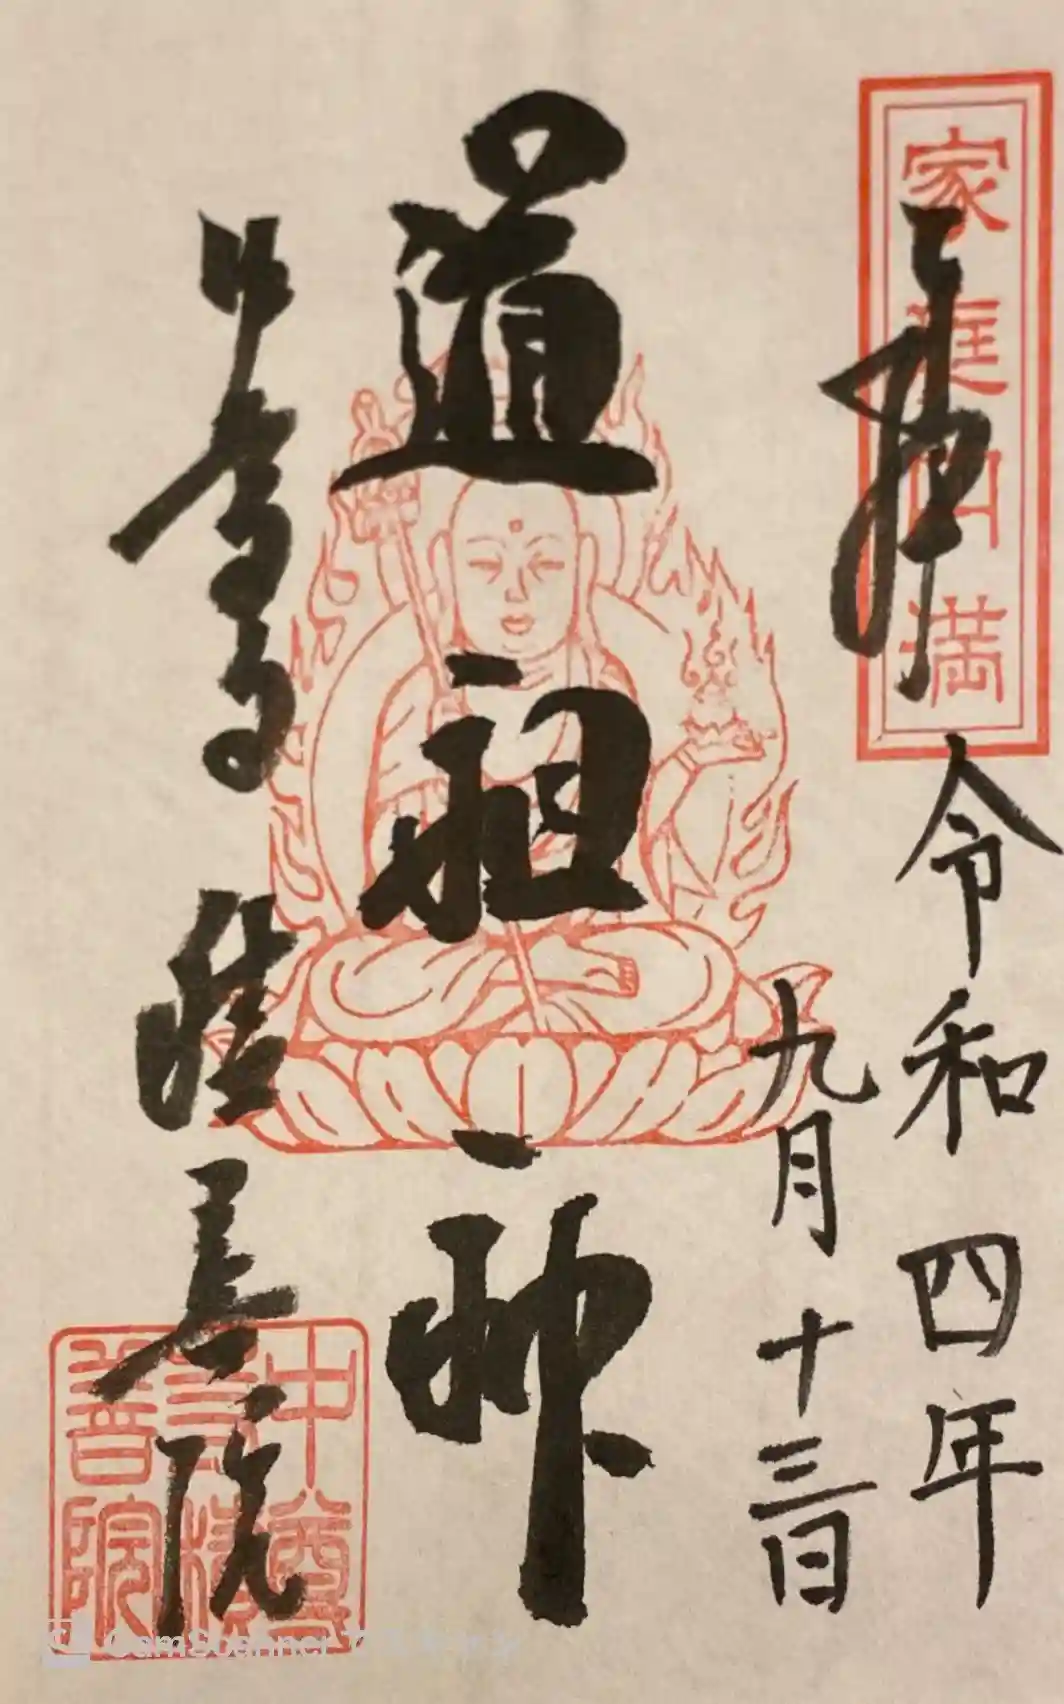 家庭円満
奉拝
令和四年
九月十三日
道祖神
中尊寺積善院
中尊
寺積
善院